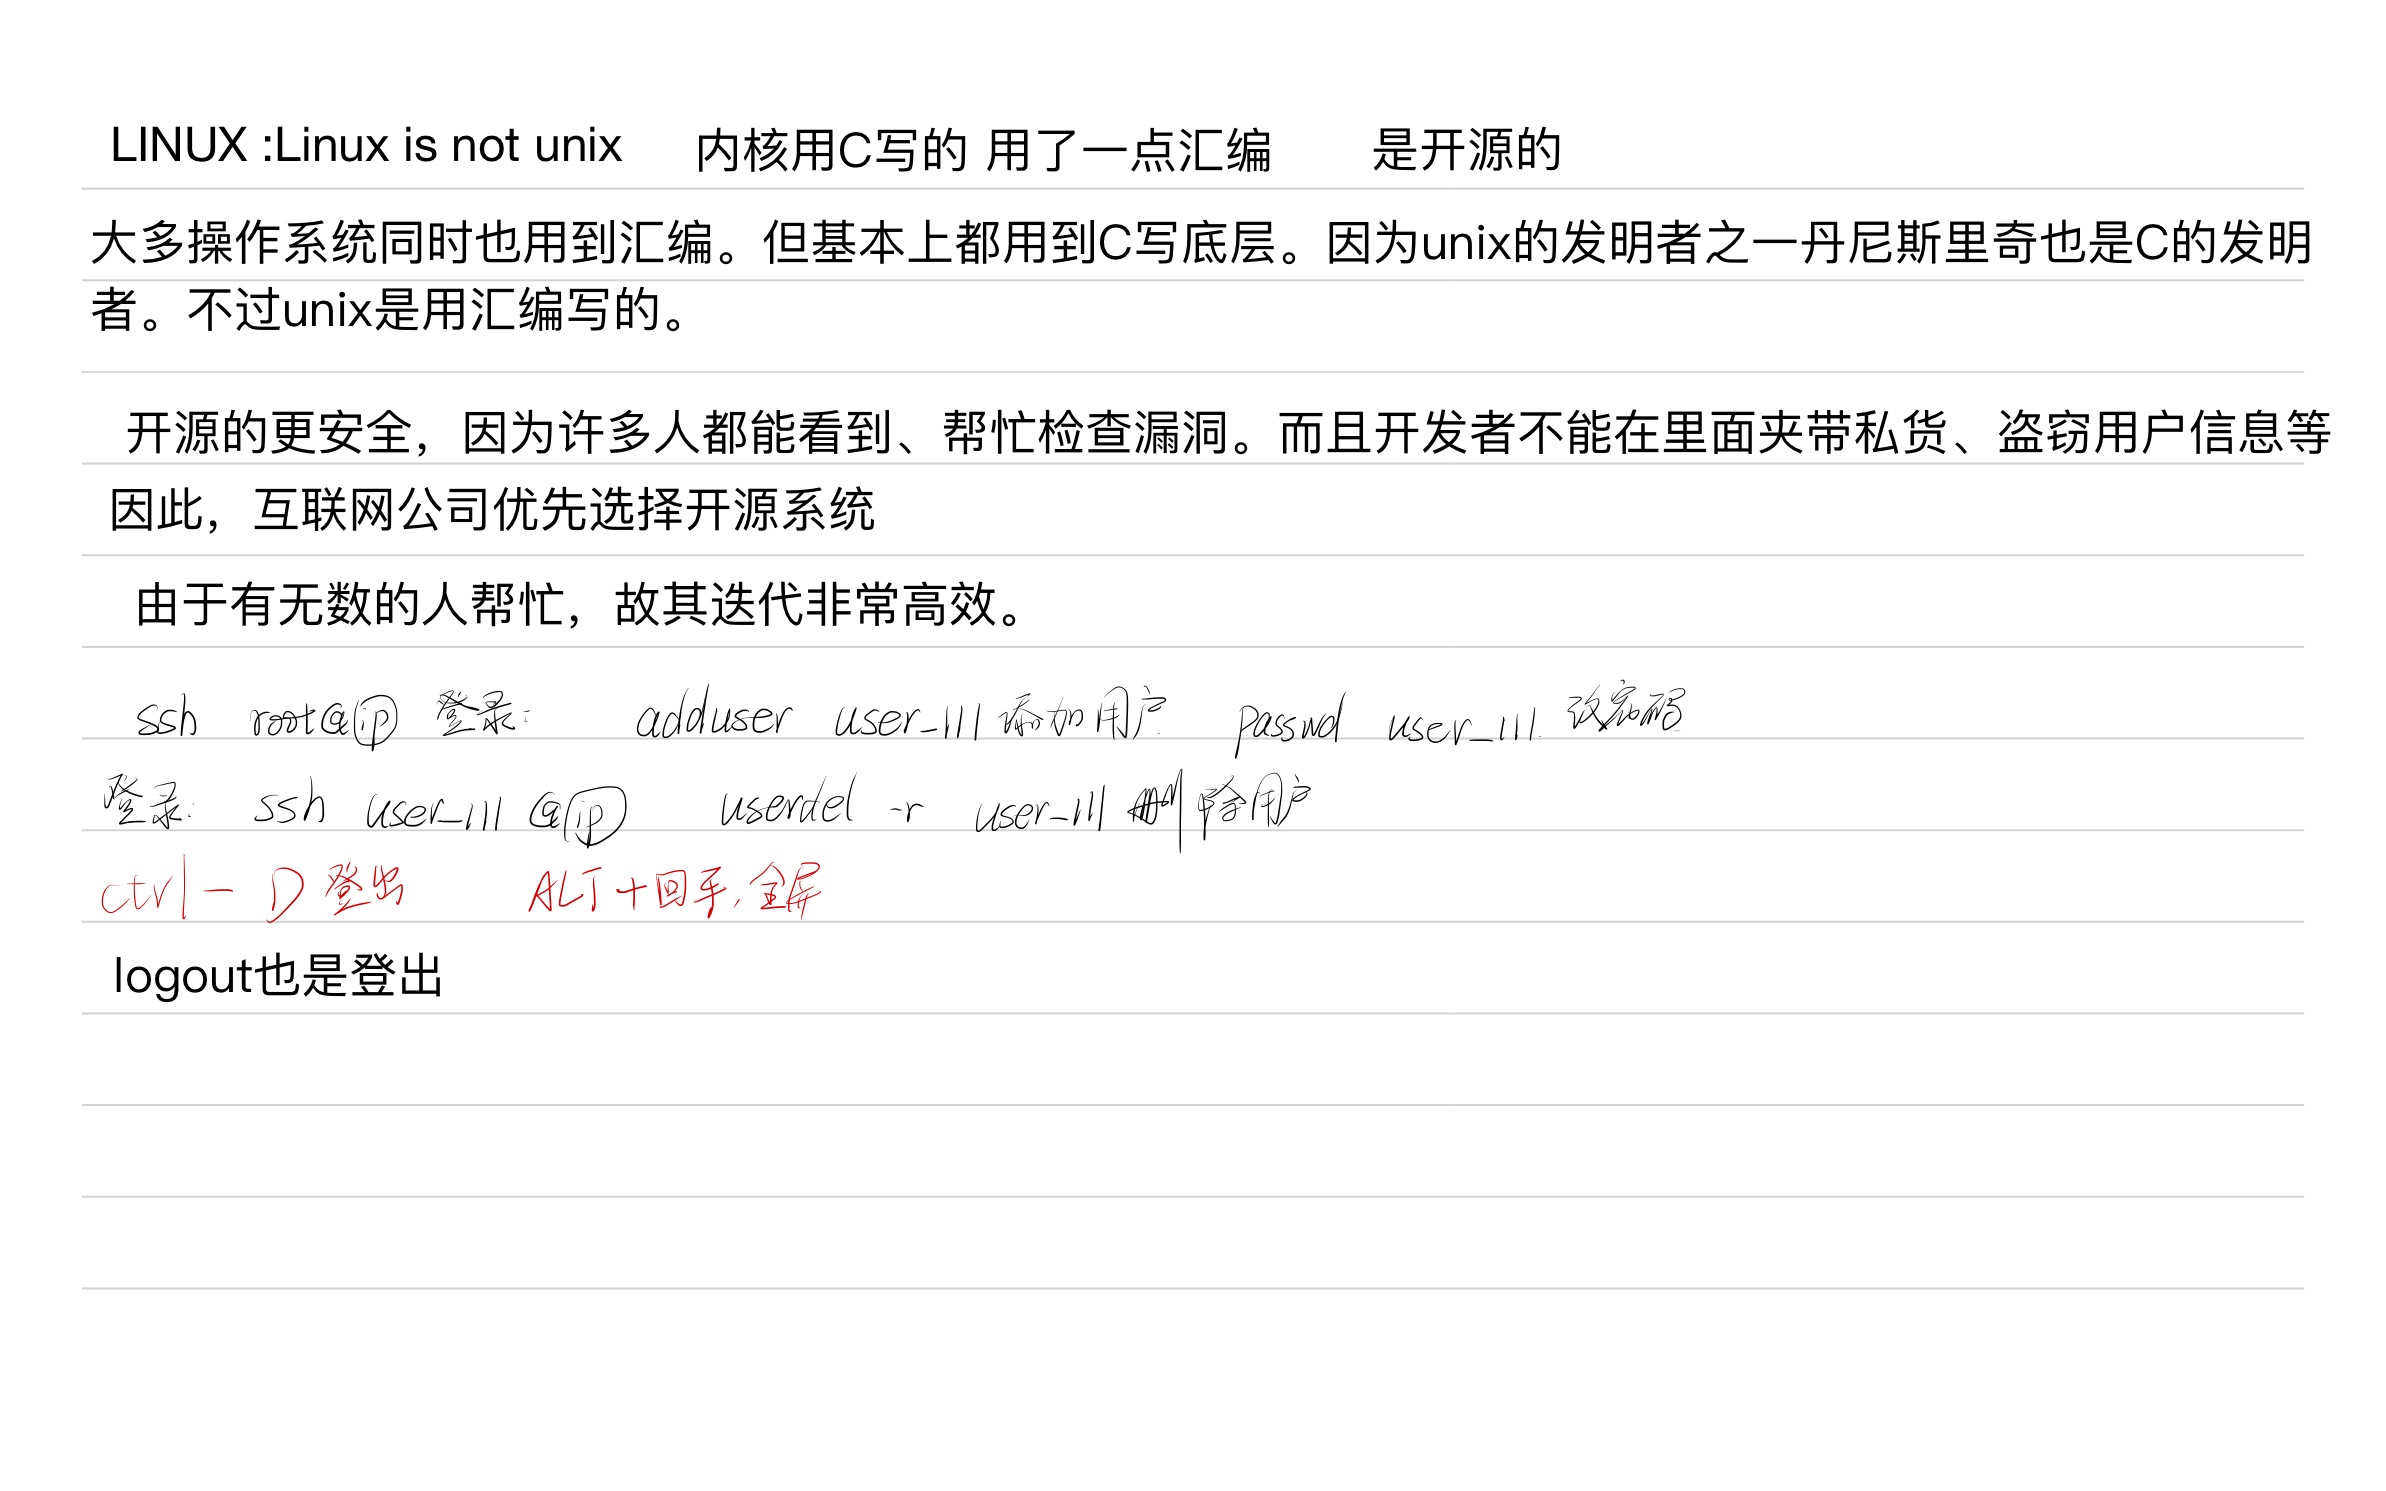 LINUX :Linux is not unix 内核用C写的 用了一点汇编 是开源的
大多操作系统同时也用到汇编。但基本上都用到C写底层。因为unix的发明者之一丹尼斯里奇也是C的发明
者。不过unix是用汇编写的。
开源的更安全，因为许多人都能看到、帮忙检查漏洞。而且开发者不能在里面夹带私货、盗窃用户信息等
因此，互联网公司优先选择开源系统
由于有无数的人帮忙，故其迭代非常高效。
ssh root@ip 登录: adduser user_111 添加用户 passwd user_111. 改密码
登录: ssh user_111 @ip userdel -r user_111 删除用户
ctrl - D 登出 ALT+回车,全屏
logout也是登出